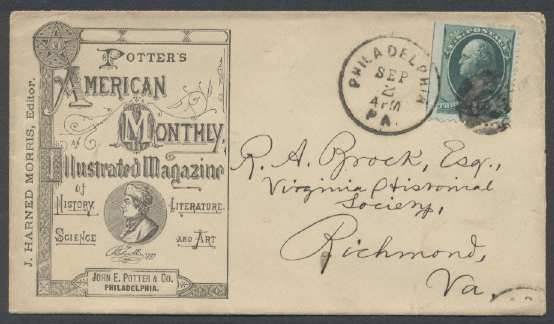 J. HARNED MORRIS, Editor.
POTTER'S
AMERICAN
MONTHLY,
AN
Illustrated Magazine
of
HISTORY, LITERATURE,
SCIENCE AND ART
JOHN E. POTTER & CO.
PHILADELPHIA.
PHILADELPHIA
SEP
2
4PM
PA.
U.S. POSTAGE
R. A. Brock, Esq.,
Virginia Historical
Society,
Richmond,
Va.